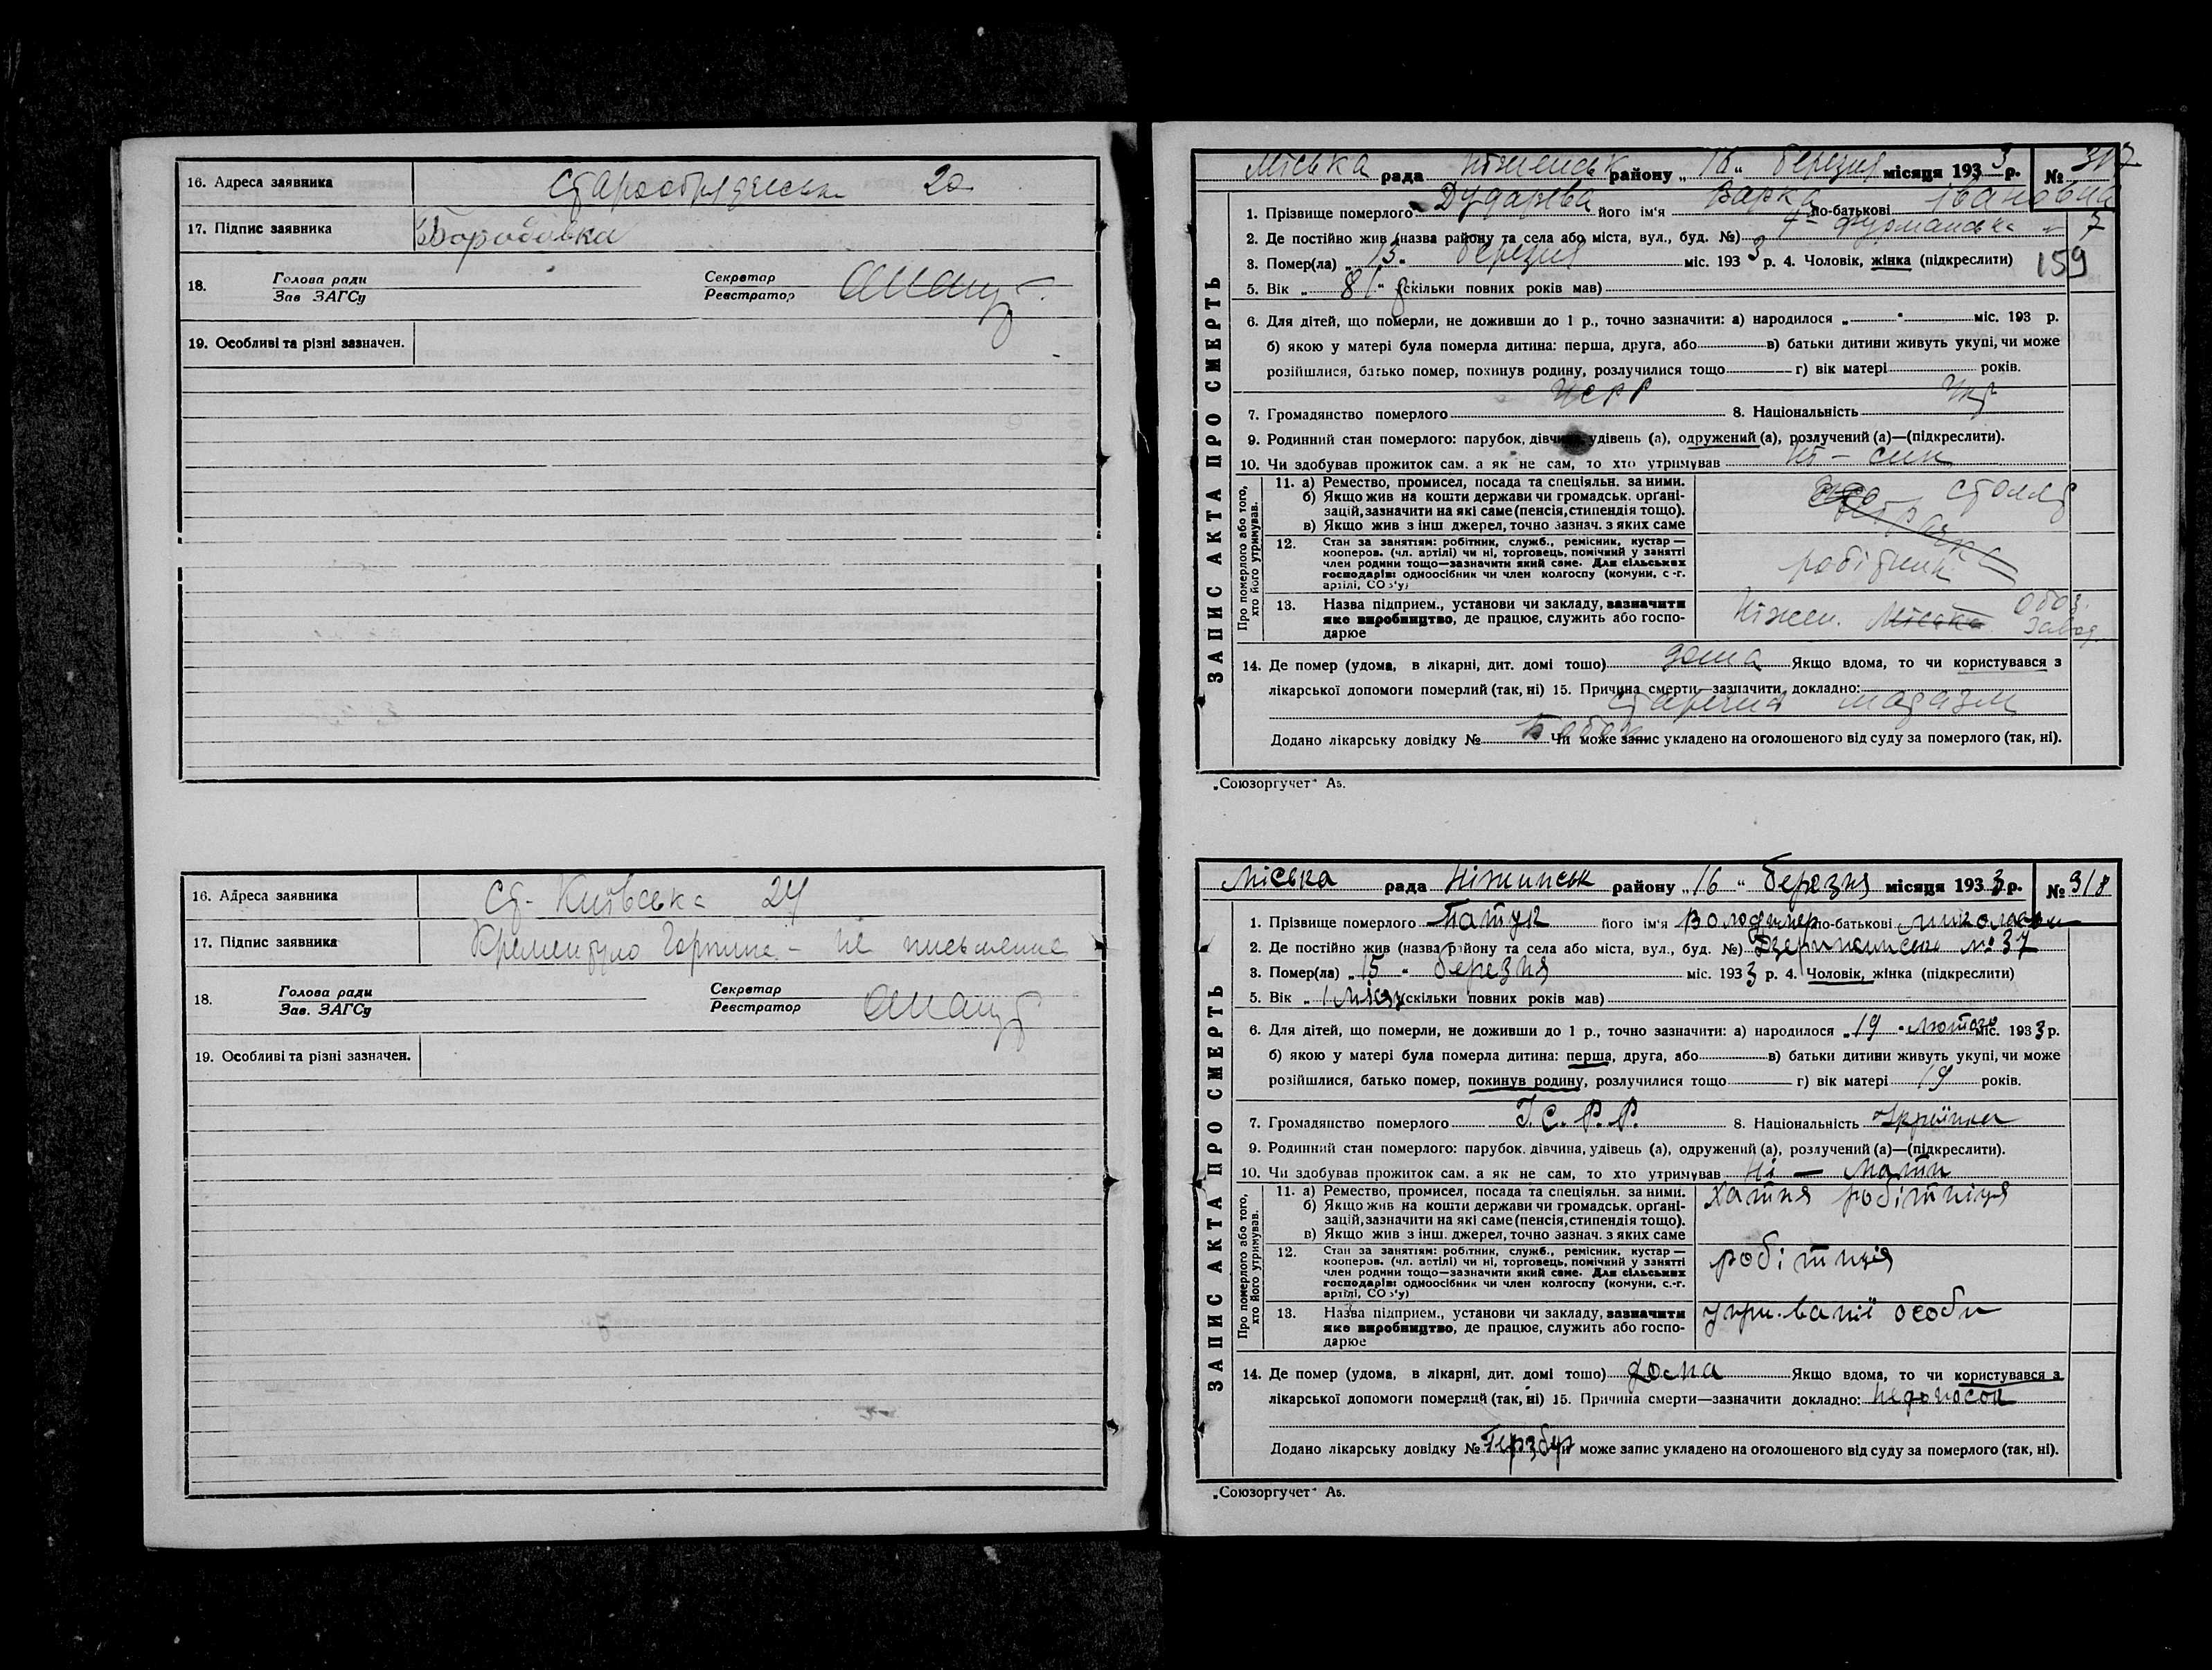 16. Адреса заявника Старообрядческа 20
17. Підпис заявника
18. Голова ради Секретар
Зав ЗАГСу Реєстратор
19. Особливі та різні зазначен.
16. Адреса заявника Ст-Київська 24
17. Підпис заявника Горпина - не письменна
18. Голова ради Секретар
Зав. ЗАГСу Реєстратор
19. Особливі та різні зазначен.
ЗАПИС АКТА ПРО СМЕРТЬ
Міська рада Ніженськ району „16“ березня місяця 1933 р. № 317
1. Прізвище померлого Дударева його ім'я Варка по-батькові Івановна
2. Де постійно жив (назва району та села або міста, вул., буд. №) 7
3. Помер(ла) „15“ березня міс. 1933 р. 4. Чоловік, жінка (підкреслити) 159
5. Вік „81“ (скільки повних років мав)
6. Для дітей, що померли, не доживши до 1 р., точно зазначити: а) народилося „ “ міс. 193 р.
б) якою у матері була померла дитина: перша, друга, або в) батьки дитини живуть укупі, чи може
розійшлися, батько помер, покинув родину, розлучилися тощо г) вік матері років.
7. Громадянство померлого УСРР 8. Національність Укр
9. Родинний стан померлого: парубок, дівчина, удівець (а), одружений (а), розлучений (а)—(підкреслити).
10. Чи здобував прожиток сам, а як не сам, то хто утримував ні - син
Про померлого або того, хто його утримував.
11. а) Ремество, промисел, посада та спеціяльн. за ними. столяр
б) Якщо жив на кошти держави чи громадськ. орґані-
зацій, зазначити на які саме (пенсія, стипендія тощо).
в) Якщо жив з інш джерел, точно зазнач. з яких саме
12. Стан за заняттям: робітник, служб., ремісник, кустар — робітник
кооперов. (чл. артілі) чи ні, торговець, помічний у занятті
член родини тощо—зазначити який саме. Для сільських
господарів: одноосібник чи член колгоспу (комуни, с.-г.
артілі, СОЗ'у)
13. Назва підприєм., установи чи закладу, зазначити Ніжен. Міська Обоз. завод.
яке виробництво, де працює, служить або госпо-
дарює
14. Де помер (удома, в лікарні, дит. домі тощо) дома Якщо вдома, то чи користувався з
лікарської допомоги померлий (так, ні) 15. Причина смерти—зазначити докладно:
старечий маразм
Додано лікарську довідку № Чи може запис укладено на оголошеного від суду за померлого (так, ні).
„Союзоргучет“ А5.
ЗАПИС АКТА ПРО СМЕРТЬ
Міська рада Ніжинськ району „16“ березня місяця 1933 р. № 318
1. Прізвище померлого його ім'я Володимер по-батькові
2. Де постійно жив (назва району та села або міста, вул., буд. №) № 37
3. Помер(ла) „15“ березня міс. 1933 р. 4. Чоловік, жінка (підкреслити)
5. Вік „1 місяц (скільки повних років мав)
6. Для дітей, що померли, не доживши до 1 р., точно зазначити: а) народилося „19“ лютого міс. 1933 р.
б) якою у матері була померла дитина: перша, друга, або в) батьки дитини живуть укупі, чи може
розійшлися, батько помер, покинув родину, розлучилися тощо г) вік матері 19 років.
7. Громадянство померлого У.С.Р.Р. 8. Національність
9. Родинний стан померлого: парубок, дівчина, удівець (а), одружений (а), розлучений (а)—(підкреслити).
10. Чи здобував прожиток сам, а як не сам, то хто утримував Ні — мати
Про померлого або того, хто його утримував.
11. а) Ремество, промисел, посада та спеціяльн. за ними. хатня робітниця
б) Якщо жив на кошти держави чи громадськ. орґані-
зацій, зазначити на які саме (пенсія, стипендія тощо).
в) Якщо жив з інш. джерел, точно зазнач. з яких саме
12. Стан за заняттям: робітник, служб., ремісник, кустар — робітниця
кооперов. (чл. артілі) чи ні, торговець, помічний у занятті
член родини тощо—зазначити який саме. Для сільських
господарів: одноосібник чи член колгоспу (комуни, с.-г.
артілі, СОЗ'у)
13. Назва підприєм., установи чи закладу, зазначити у особи
яке виробництво, де працює, служить або госпо-
дарює
14. Де помер (удома, в лікарні, дит. домі тощо) дома Якщо вдома, то чи користувався з
лікарської допомоги померлий (так, ні) 15. Причина смерти—зазначити докладно: недоносок
Додано лікарську довідку № Чи може запис укладено на оголошеного від суду за померлого (так, ні).
„Союзоргучет“ А5.